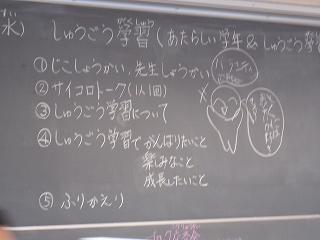 水)
しゅうごう学習(あたらしい学年&しゅうごう学習
①じこしょうかい、先生しょうかい
②サイコロトーク(1人1回)
③しゅうごう学習について
④しゅうごう学習でがんばりたいこと
楽しみなこと
成長したいこと
⑤ふりかえり